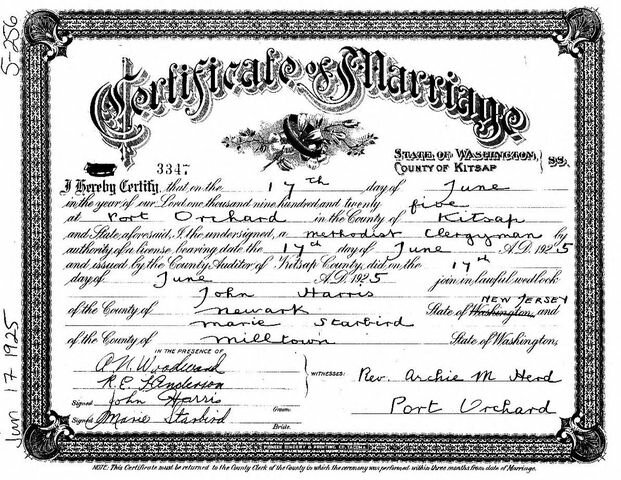 5-256
Certificate of Marriage
3347
STATE OF WASHINGTON,
COUNTY OF KITSAP } SS.
I Hereby Certify, that on the 17th day of June
in the year of our Lord one thousand nine hundred and twenty five
at Port Orchard in the County of Kitsap
and State aforesaid, I the undersigned, a Methodist Clergyman by
authority of a license bearing date the 17th day of June A.D. 1925
and issued by the County Auditor of Kitsap County, did on the 17th
day of June A.D. 1925 join in lawful wedlock
John Harris
NEW JERSEY
of the County of Newark State of Washington, and
Marie Starbird
of the County of Milltown State of Washington,
IN THE PRESENCE OF
A. N. Woodward
R. E. Anderson
WITNESSES:
Rev. Archie M Herd
Signed John Harris Groom.
Port Orchard
Signed Marie Starbird Bride.
Jun 17 1925
NOTE: This Certificate must be returned to the County Clerk of the County in which the ceremony was performed within three months from date of Marriage.